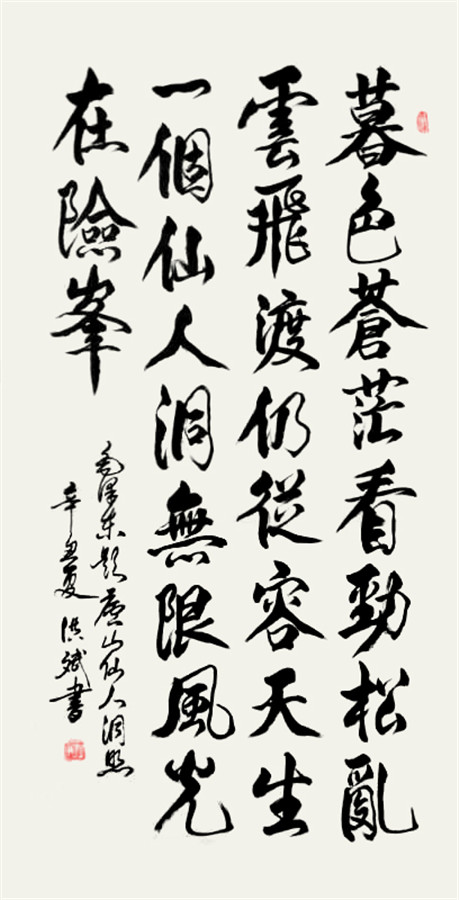 暮色蒼茫看勁松亂
雲飛渡仍從容天生
一個仙人洞無限風光
在險峯
毛澤東題廬山仙人洞照
辛丑夏 洪斌書